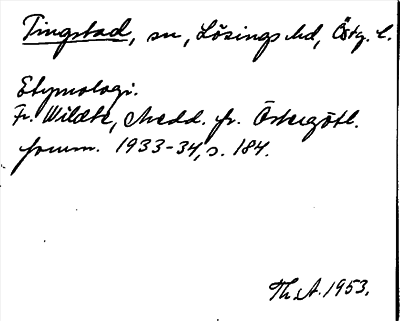 Tingstad, sn, Lösings hd, Östg. l.
Etymologi.
Fr. Wildte, Medd. fr. Östergötl.
fornm. 1933-34, s. 184.
Th. A. 1953.